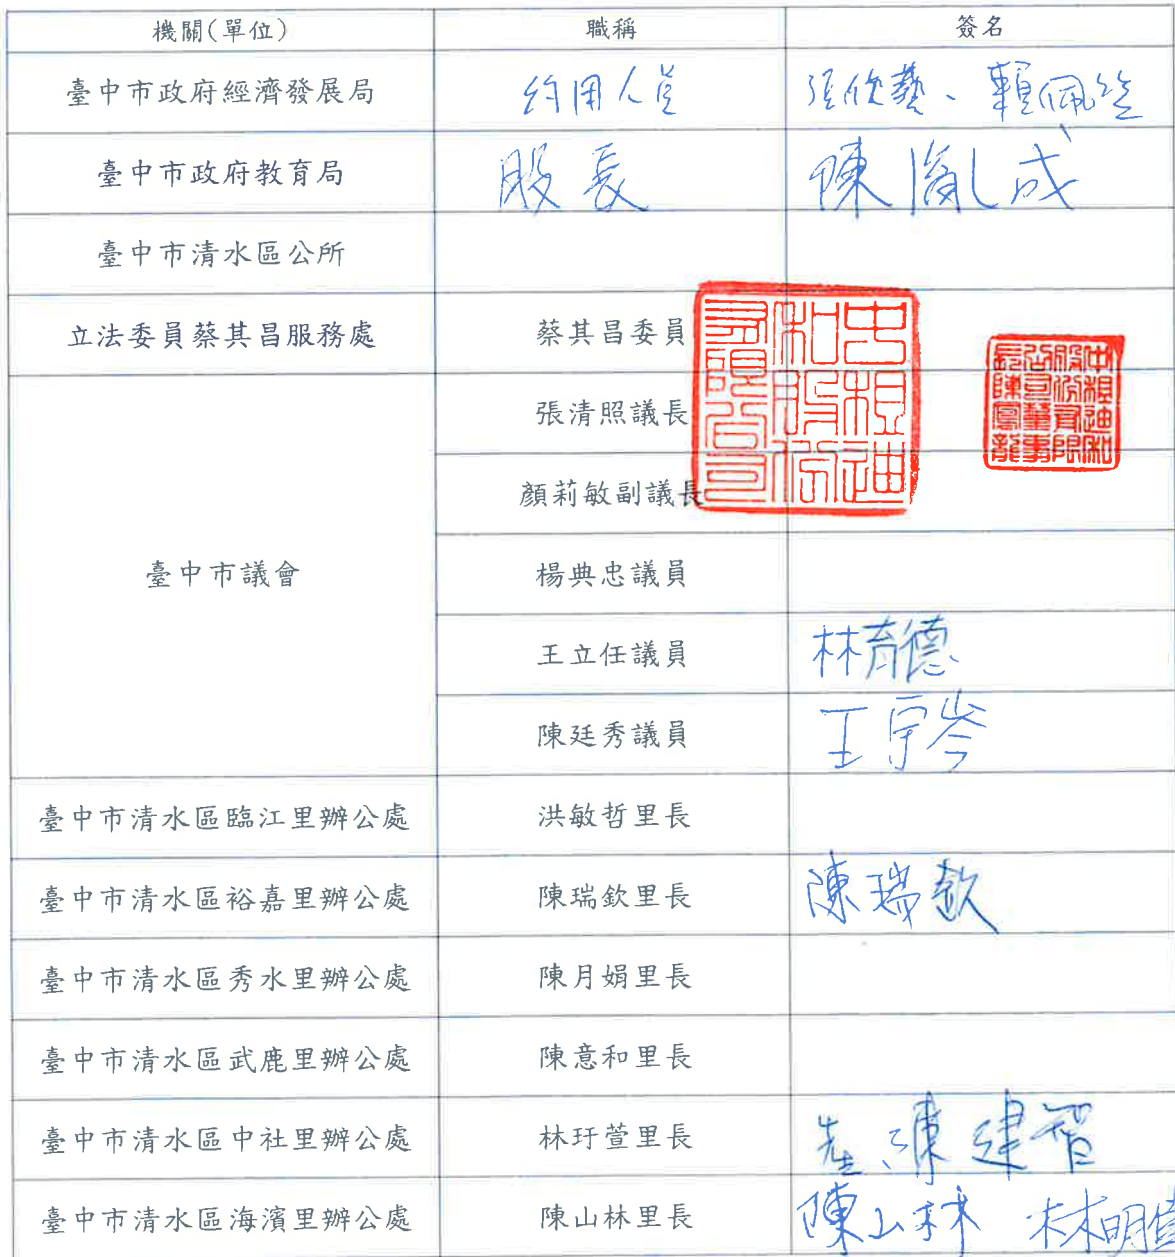 機關(單位) 職稱 簽名
臺中市政府經濟發展局 約用人員 張欣藝、賴佩
臺中市政府教育局 股長 陳胤成
臺中市清水區公所
立法委員蔡其昌服務處 蔡其昌委員
張清照議長
顏莉敏副議長
臺中市議會 楊典忠議員
王立任議員 林育德
陳廷秀議員 王宇岑
中租迪
和股份
有限公司
中租迪和
股份有限
公司董事
長陳鳳龍
臺中市清水區臨江里辦公處 洪敏哲里長
臺中市清水區裕嘉里辦公處 陳瑞欽里長 陳瑞欽
臺中市清水區秀水里辦公處 陳月娟里長
臺中市清水區武鹿里辦公處 陳意和里長
臺中市清水區中社里辦公處 林玗萱里長 陳建智
臺中市清水區海濱里辦公處 陳山林里長 陳山林 林明